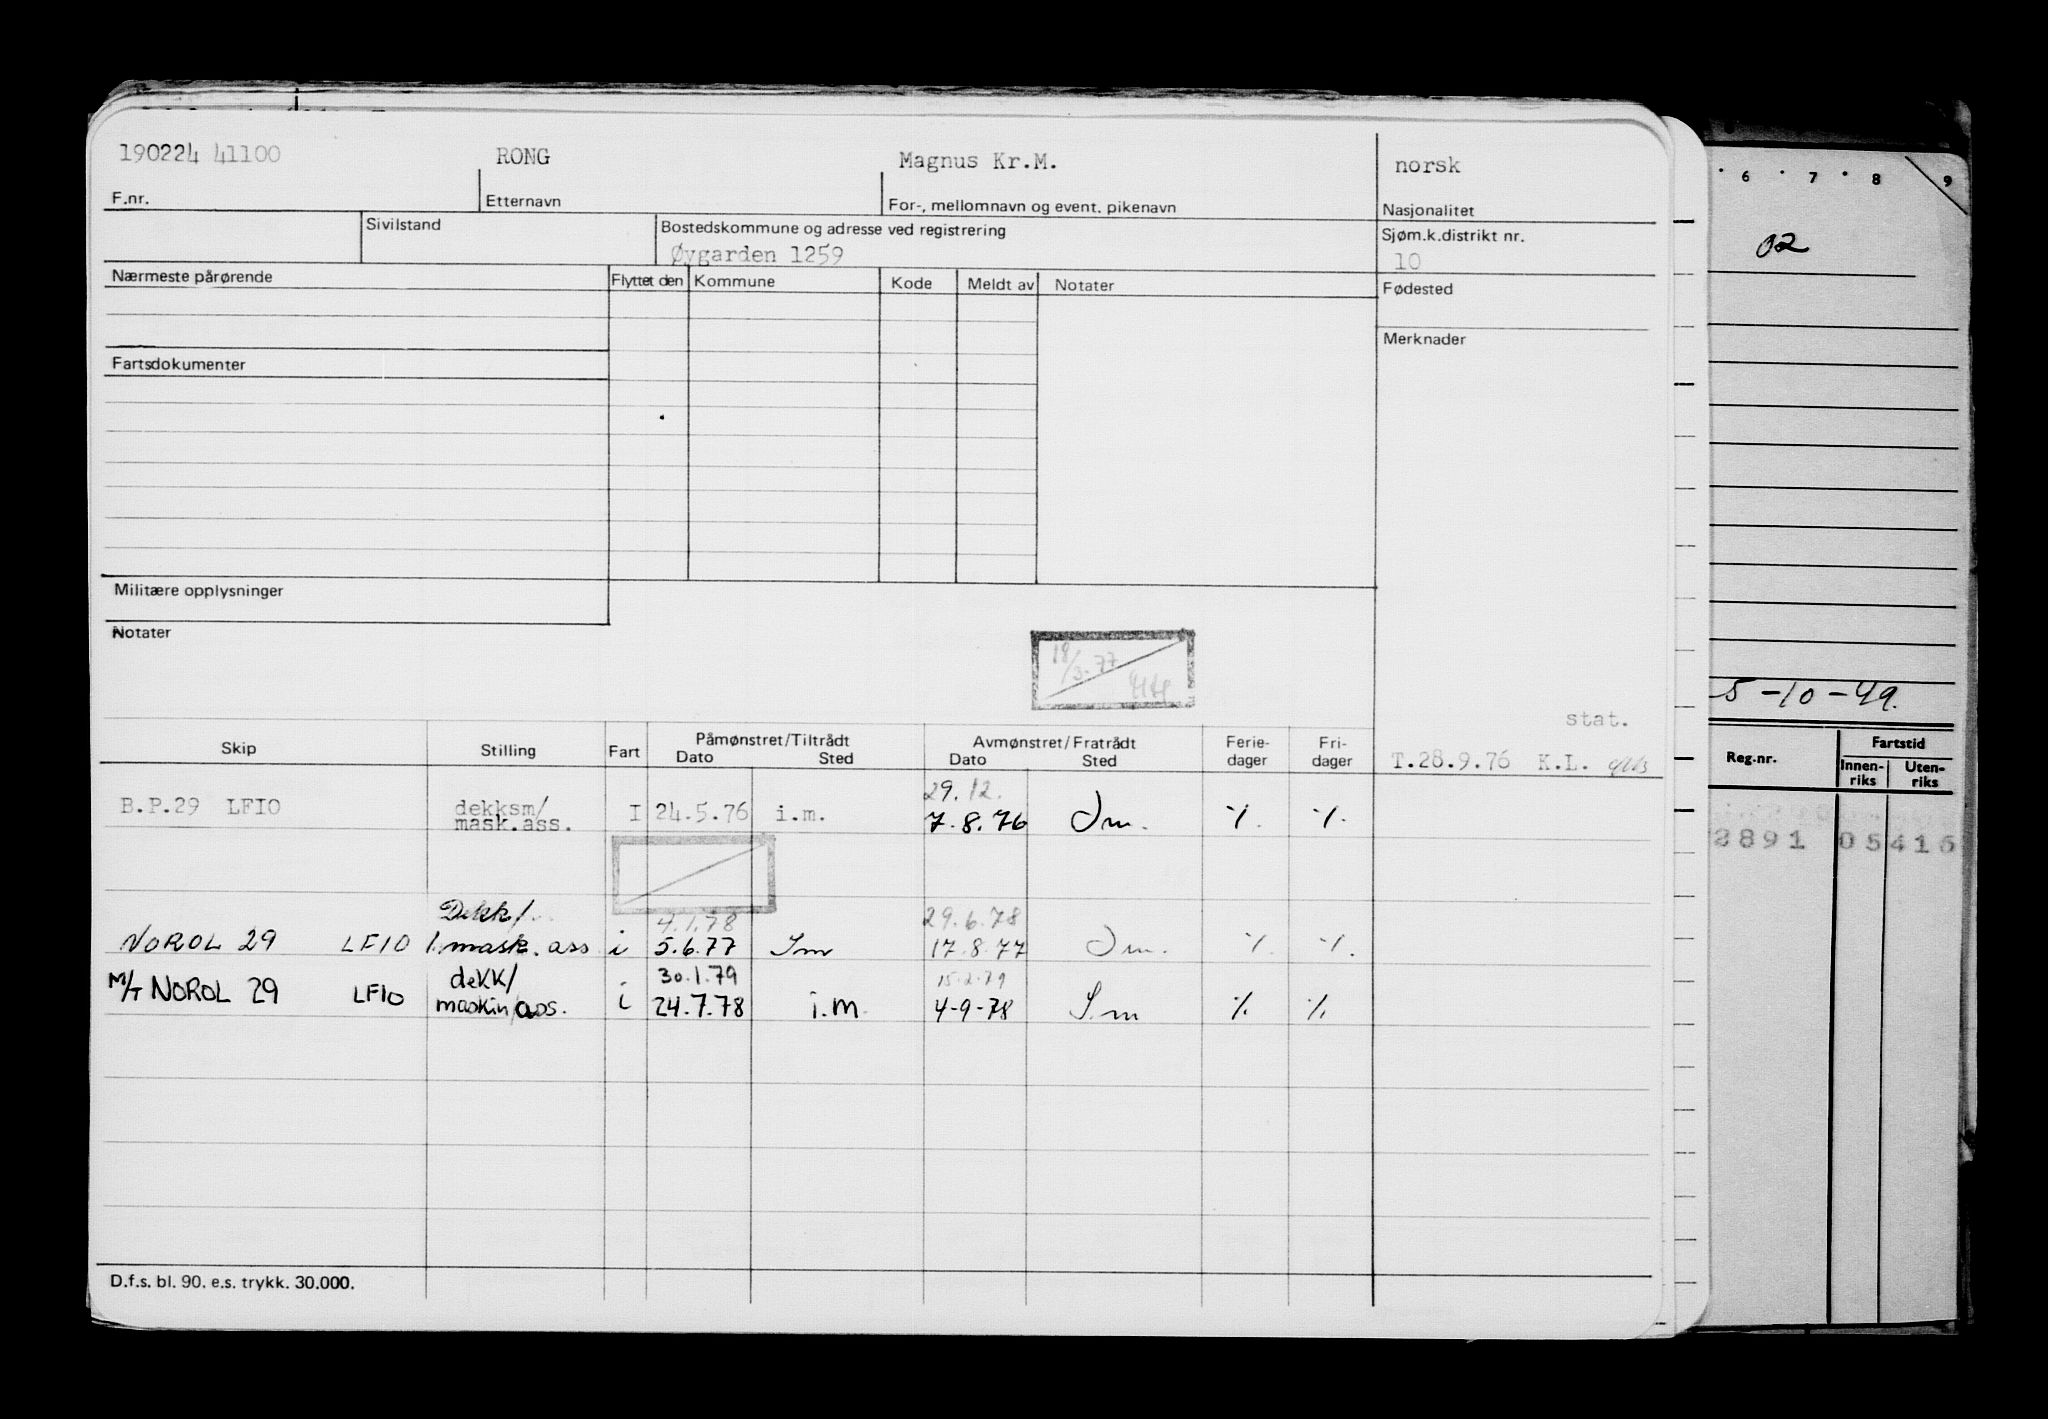 190224 41100 RONG Magnus Kr.M. norsk
F.nr. Etternavn For-, mellomnavn og event. pikenavn Nasjonalitet
Sivilstand Bostedskommune og adresse ved registrering Sjøm.k.distrikt nr.
Øygarden 1259 10
Nærmeste pårørende Flyttet den Kommune Kode Meldt av Notater Fødested
Merknader
Fartsdokumenter
Militære opplysninger
Notater
18/3-77
HH
stat.
Skip Stilling Fart Påmønstret/Tiltrådt Avmønstret/Fratrådt Ferie- Fri-
Dato Sted Dato Sted dager dager T.28.9.76 K.L.
29.12.
B.P.29 LFIO dekksm/ I 24.5.76 i.m. 7.8.76 Im. % %
mask.ass.
Dekk/ 4.1.78 29.6.78
NOROL 29 LFIO 1.mask.ass i 5.6.77 Im 17.8.77 Im. % %
dekk/ 30.1.79 15.2.79
M/T NOROL 29 LFIO maskin/ass. i 24.7.78 i.m. 4-9-78 I.m % %
D.f.s. bl. 90. e.s. trykk. 30.000.
6 7 8 9
02
5-10-49.
Reg.nr. Fartstid
Innen- Uten-
riks riks
2891 05416